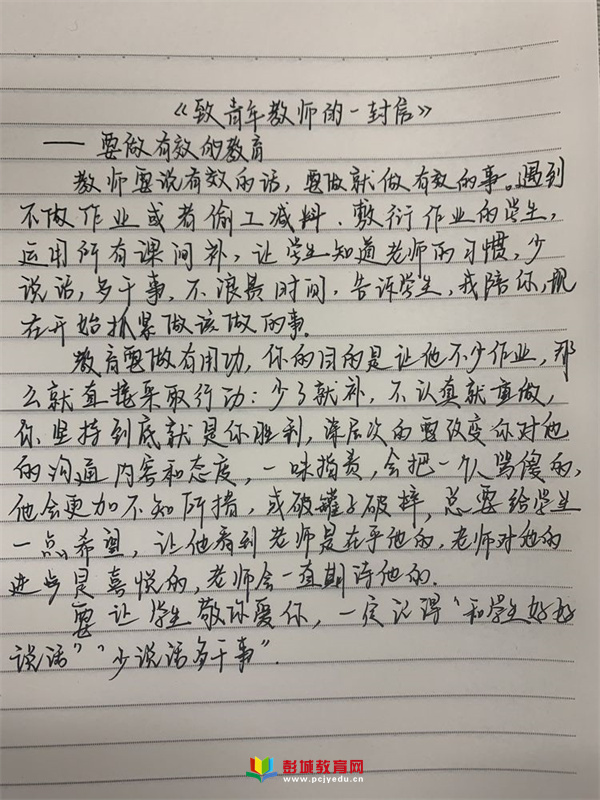 《致青年教师的一封信》
——要做有效的教育
教师要说有效的话，要做就做有效的事。遇到
不做作业或者偷工减料、敷衍作业的学生，
运用所有课间补，让学生知道老师的习惯，少
说话，多干事，不浪费时间，告诉学生，我陪你，现
在开始抓紧做该做的事。
教育要做有用功，你的目的是让他不少作业，那
么就直接采取行动：少了就补，不认真就重做，
你坚持到底就是你胜利，深层次的要改变你对他
的沟通内容和态度，一味指责，会把一个人骂傻的，
他会更加不知所措，或破罐子破摔，总要给学生
一点希望，让他看到老师是在乎他的，老师对他的
进步是喜悦的，老师会一直期待他的.
要让学生敬你爱你，一定记得“和学生好好
说话”“少说话多干事”.
彭城教育网
www.pcjyedu.cn